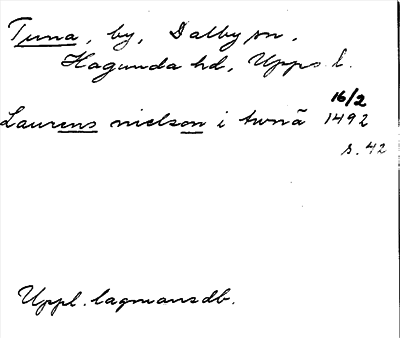 Tuna, by, Dalby sn,
Hagunda hd, Upps. l.
16/2
Laurens nielson i twnã 1492
s. 42
Uppl. lagmansdb.